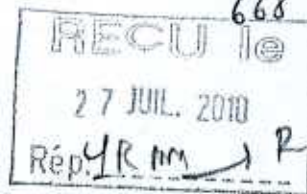 668
RECU le
27 JUIL. 2010
Rép. YR MM R